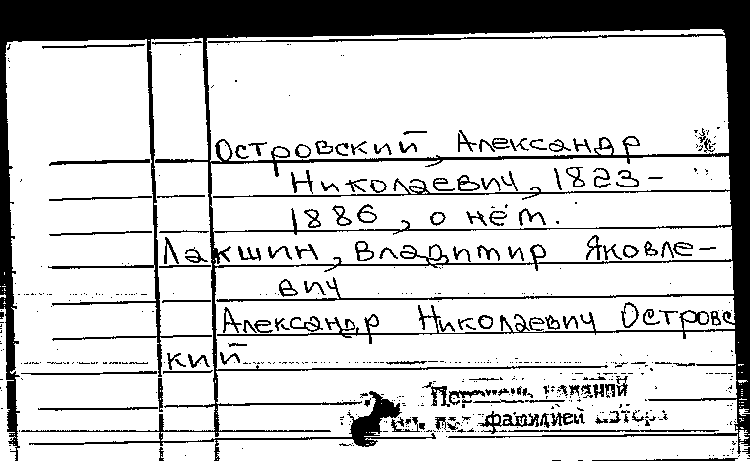 Островский, Александр
Николаевич, 1823-
1886, о нём.
Лакшин, Владимир Яковле-
вич
Александр Николаевич Островс
кий.
Перечень изданий
см. под фамилией автора